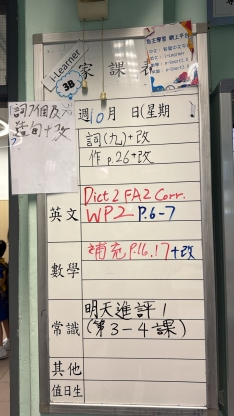 i-Learner
3B
自主學習 網上平台
家課表
詞7個反六
造句+改
週10月 日(星期
詞(九)+改
作 p.26+改
英文
Dict 2 FA2 Corr.
WP2 P.6-7
數學
補充P.16.17+改
常識
明天進評1
(第3-4課)
其他
值日生